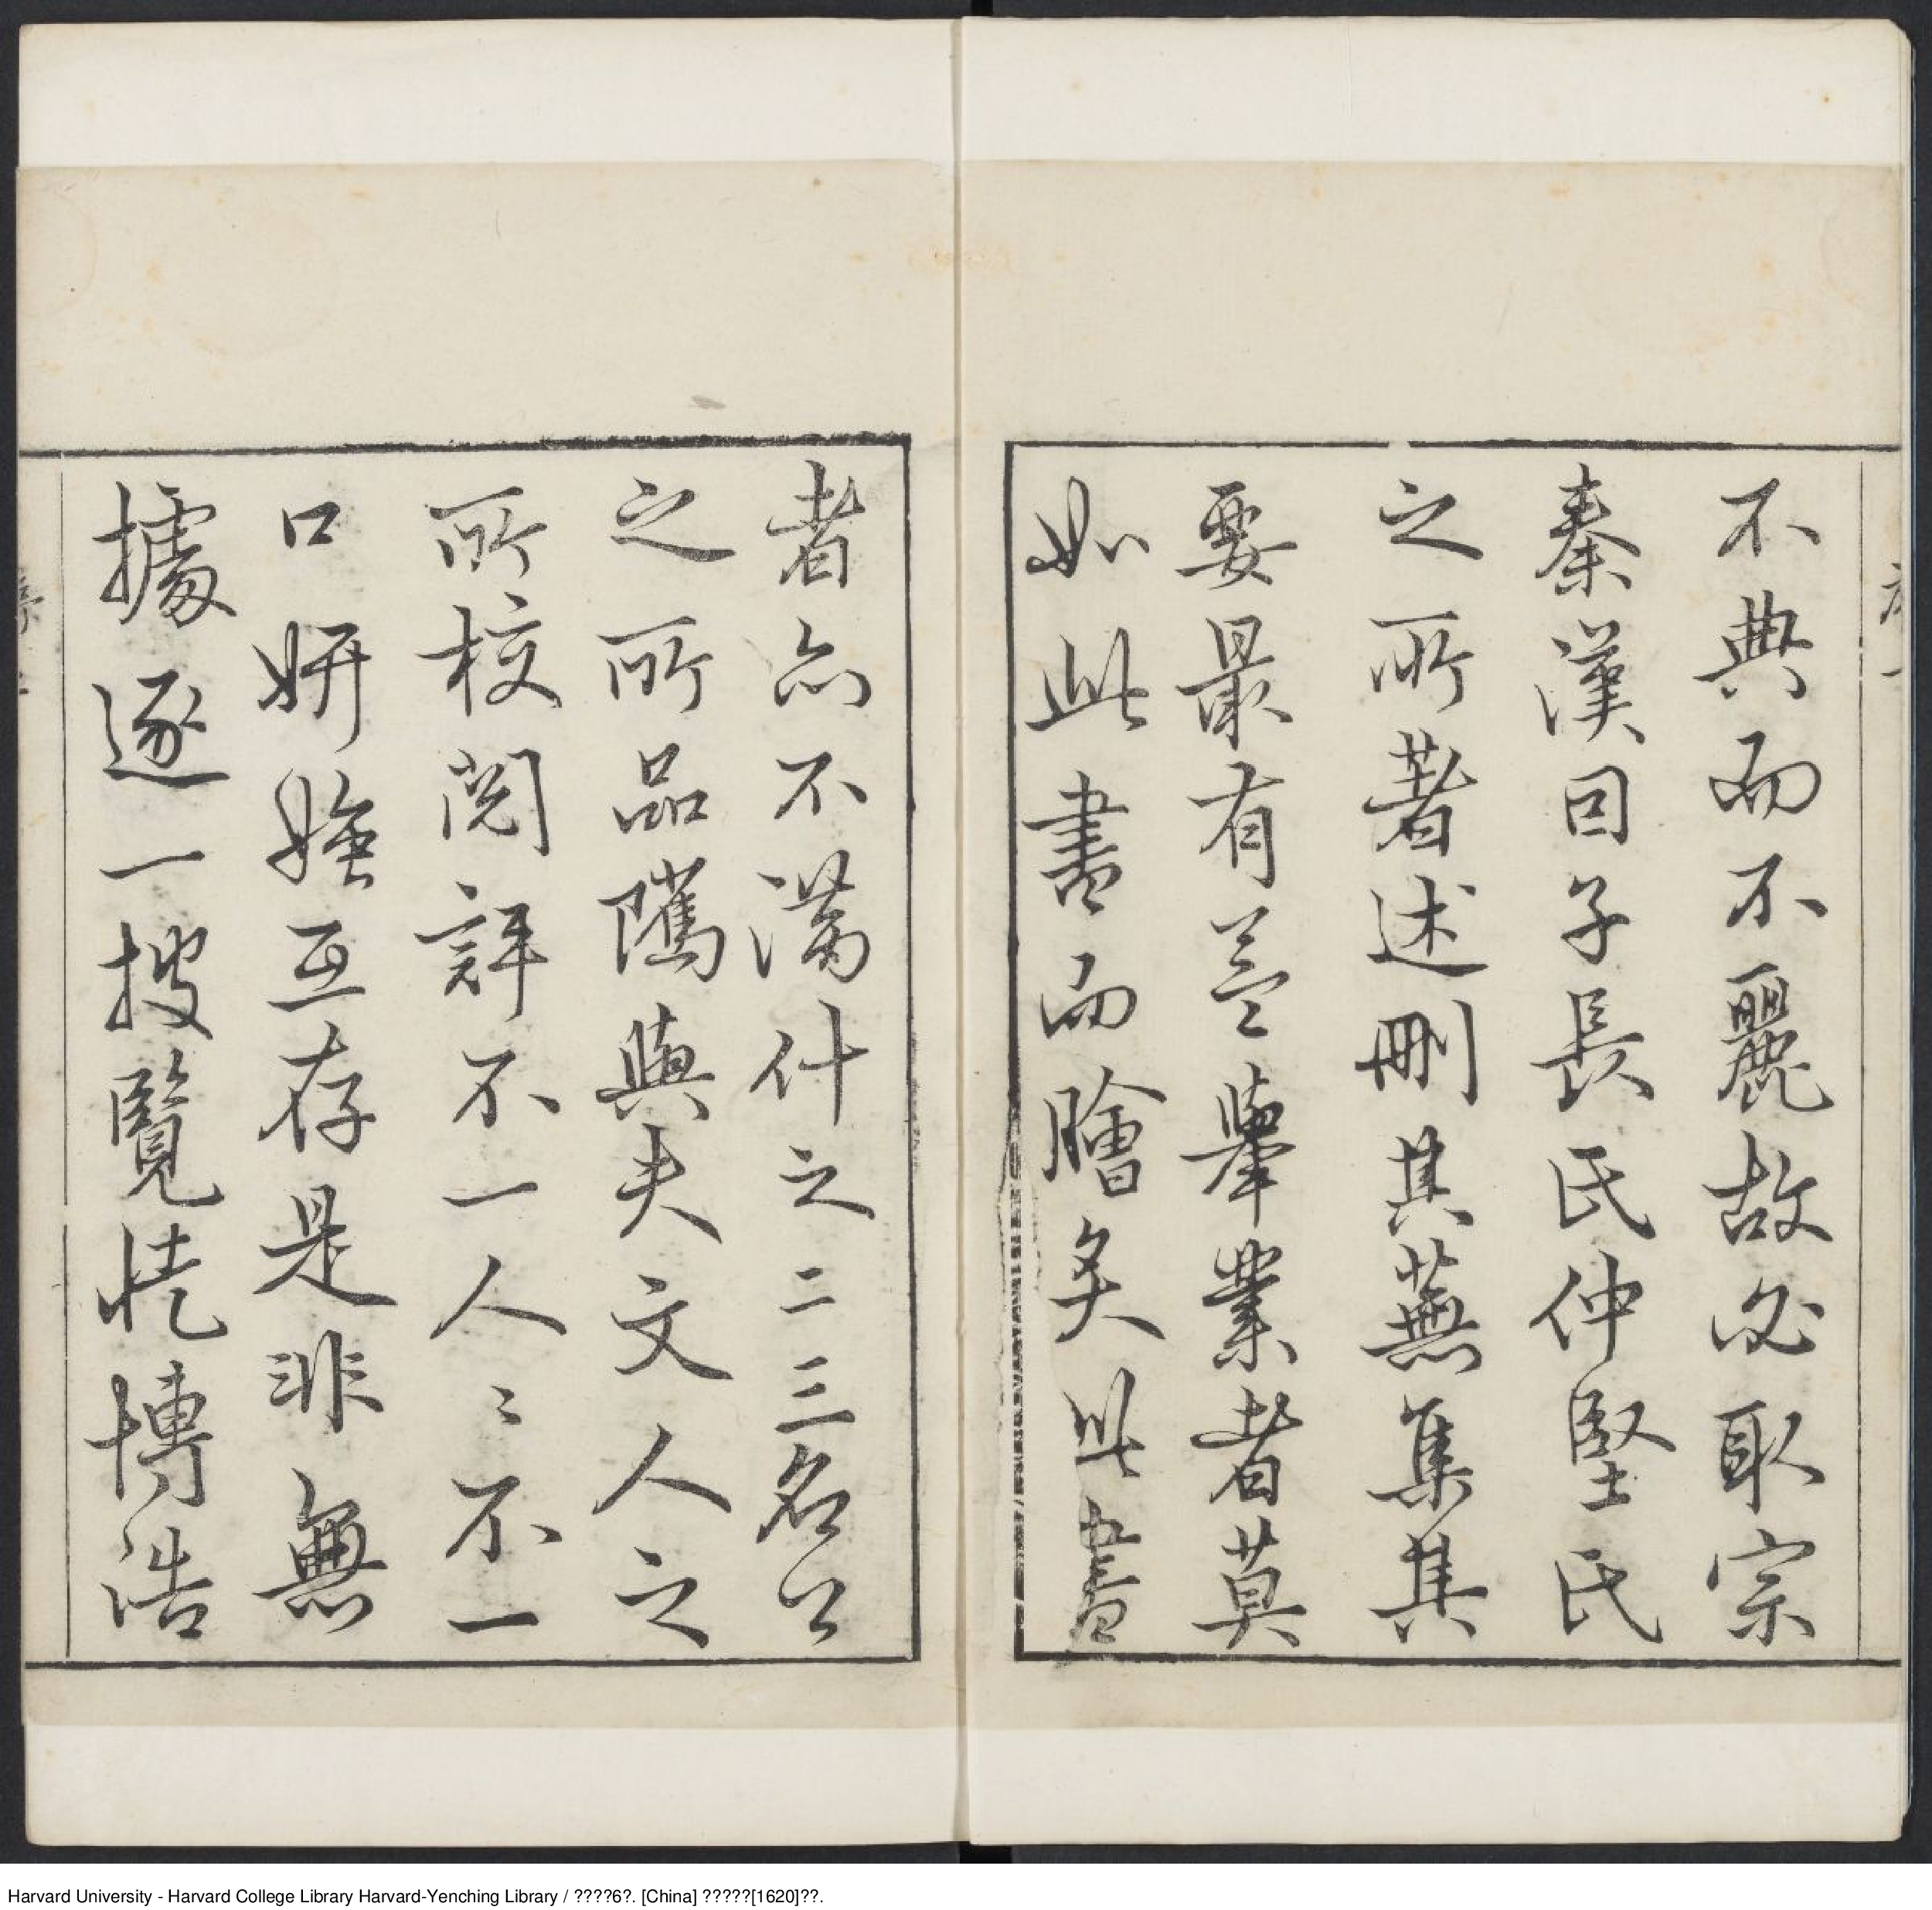 不典而不麗故必取宗
秦漢因子長氏仲堅氏
之所著述刪其蕪集其
要最有益舉業者莫
如此書而膾炙此書
者亦不滿什之二三名公
之所品隲與夫文人之
所校閱評不一人〻不一
口妍媸互存是非無
據逐一搜覽恍博浩
Harvard University - Harvard College Library Harvard-Yenching Library / ????6?. [China] ?????[1620]??.